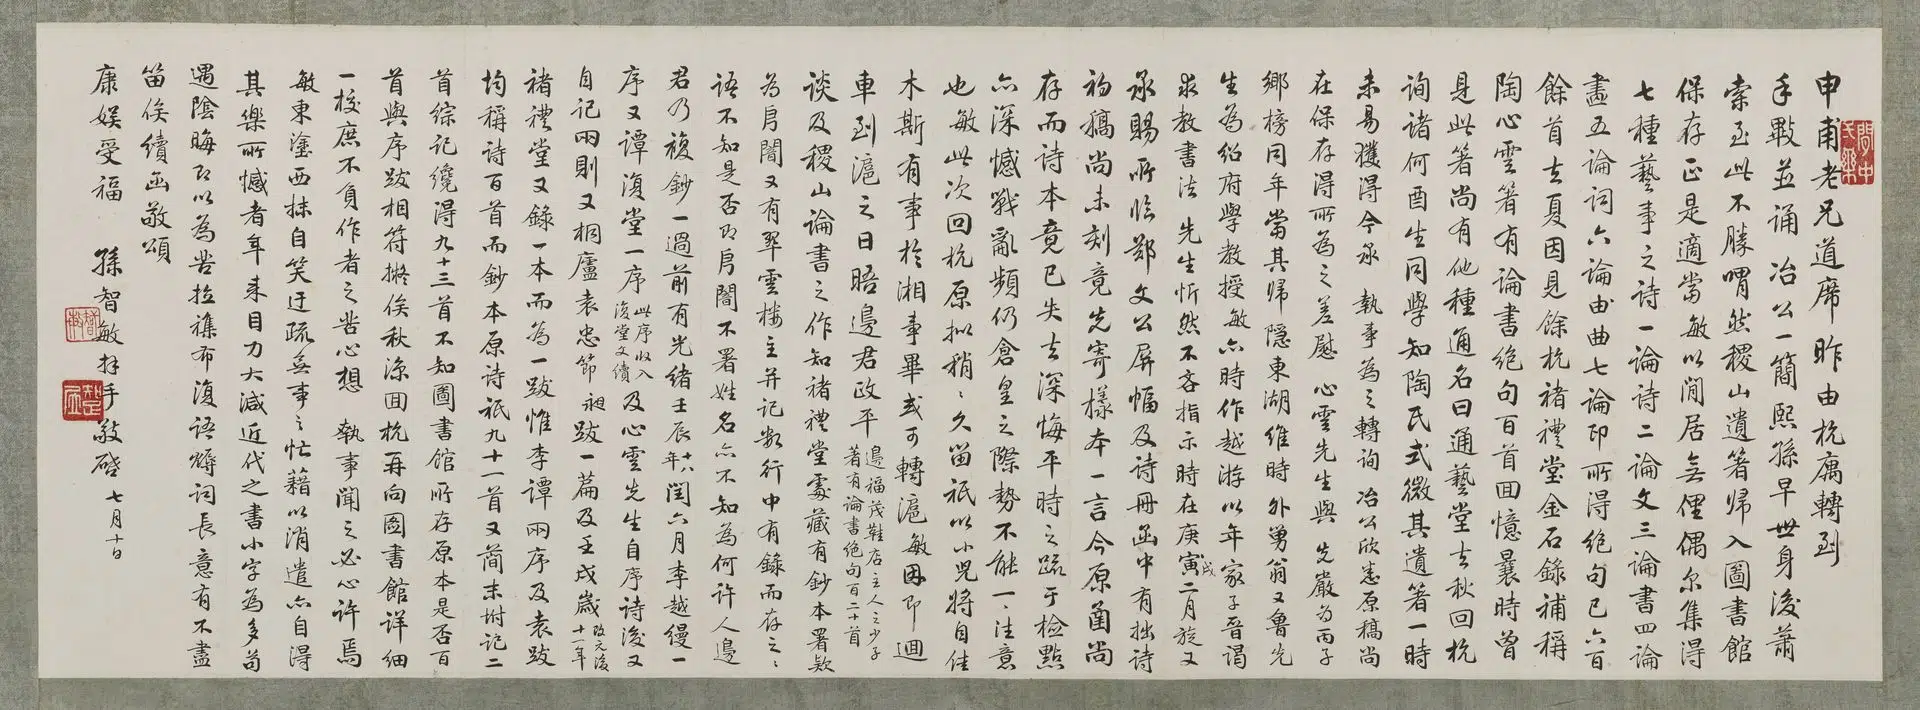 申甫老兄道席昨由杭寓轉到
手斁並誦冶公一簡熙孫早世身後蕭
索至此不勝喟然稷山遺箸歸入圖書館
保存正是適當敏以閒居無俚偶尔集得
七種藝事之詩一論詩二論文三論書四論
畫五論詞六論曲七論印所得絕句已六百
餘首去夏因見餘杭褚禮堂金石錄補稱
陶心雲箸有論書絕句百首回憶曩時曾
見此箸尚有他種通名曰通藝堂去秋回杭
詢諸何酉生同學知陶氏式微其遺箸一時
未易獲得今承 執事為之轉詢 冶公欣悉原稿尚
在保存得所為之差慰 心雲先生與 先嚴為丙子
鄉榜同年當其歸隱東湖維時外舅翁又魯先
生為紹府學教授敏六時作越游以年家子晉謁
求教書法 先生忻然不吝指示時在庚寅二月旋又
戌
承賜所臨鄭文公屏幅及詩冊函中有拙詩
初稿尚未刻竟先寄樣本一言今原函尚
存而詩本竟已失去深悔平時之疏于檢點
亦深憾戰亂頻仍倉皇之際勢不能一一注意
也敏此次回杭原拟稍稍久留祇以小兒將自佳
木斯有事於湘事畢或可轉滬敏因即迴
車到滬之日晤邊君政平
邊福茂鞋店主人之少子
著有論書絕句百二十首
談及稷山論書之作知褚禮堂處藏有鈔本署款
為房闇又有翠雲樓主并記數行中有錄而存之之
語不知是否即房闇不署姓名亦不知為何許人邊
君乃複鈔一過前有光緒壬辰
十八年
閏六月李越縵一
序又譚復堂一序
此序收入
復堂文續
及心雲先生自序詩後又
自記兩則又桐廬袁忠節 昶 跋一篇及壬戌歲
改元後
十一年
褚禮堂又錄一本而為一跋惟李譚兩序及袁跋
均稱詩百首而鈔本原詩祇九十一首又簡末坿記二
首綜記纔得九十三首不知圖書館所存原本是否百
首與序跋相符擬俟秋涼回杭再向圖書館詳細
一校庶不負作者之苦心想 執事聞之必心許焉
敏東塗西抹自笑迂疏無事之忙藉以消遣亦自得
其樂所憾者年來目力大減近代之書小字為多苟
遇陰晦即以為苦拉襍布復語醻詞長意有不盡
笛俟續函敬頌
康娛受福 孫智敏拜手敬啓 七月十日